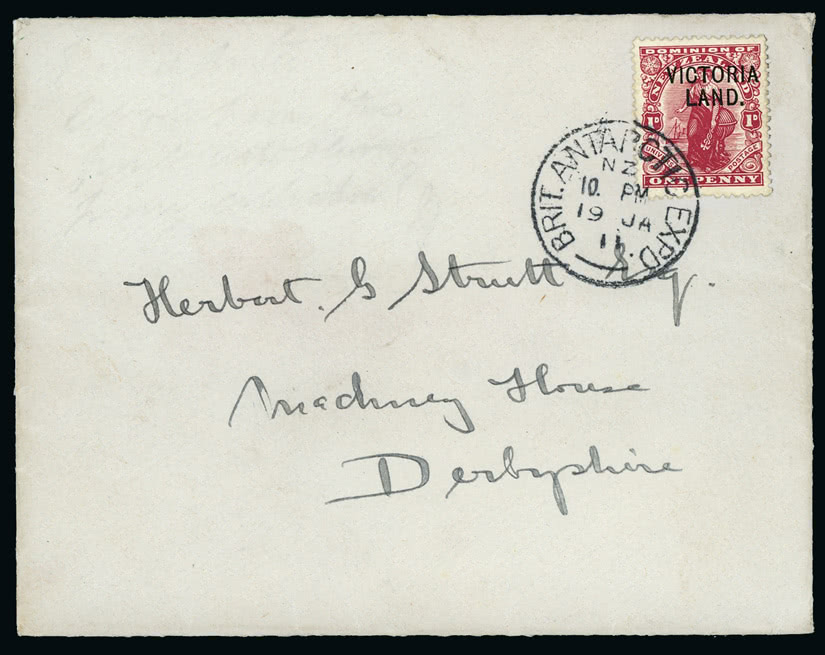 DOMINION OF
NEW ZEALAND
VICTORIA
LAND.
1D 1D
UNIVERSAL POSTAGE
ONE PENNY
BRIT. ANTARCTIC EXPD.
NZ
10. PM
19 JA
11
Herbert. G Strutt Esq.
Machney House
Derbyshire